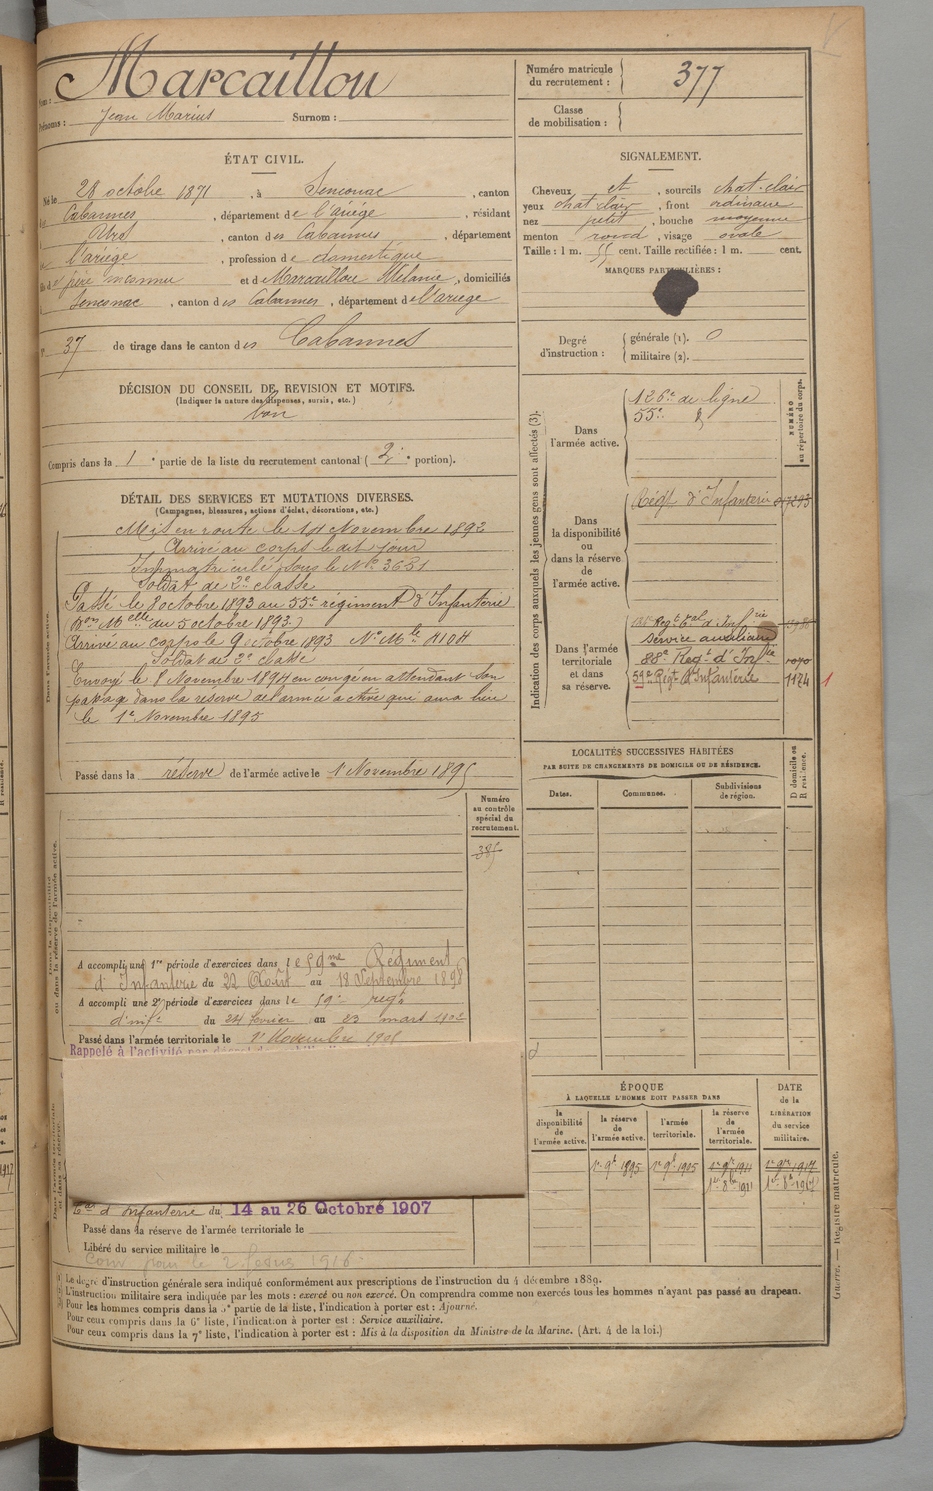 Nom : Marcaillou
Prénoms : Jean Marius Surnom :
Numéro matricule du recrutement : 377
Classe de mobilisation :
ÉTAT CIVIL.
Né le 28 octobre 1871, à Senconac, canton
de Cabannes, département de l'ariége, résidant
à Urs, canton des Cabannes, département
de l'ariege, profession de domestique
fils de père inconnu et de Marcaillou Mélanie, domiciliés
à Senconac, canton des Cabannes, département de l'ariege
N° 37 de tirage dans le canton des Cabannes
SIGNALEMENT.
Cheveux et, sourcils chat-clair
yeux chat clair, front ordinaire
nez petit, bouche moyenne
menton rond, visage ovale
Taille : 1 m. 55 cent. Taille rectifiée : 1 m. cent.
MARQUES PARTICULIÈRES :
Degré d'instruction : générale (1). 0
militaire (2).
DÉCISION DU CONSEIL DE REVISION ET MOTIFS.
(Indiquer la nature des dispenses, sursis, etc.)
bon
Compris dans la 1e partie de la liste du recrutement cantonal (2e portion).
DÉTAIL DES SERVICES ET MUTATIONS DIVERSES.
(Campagnes, blessures, actions d'éclat, décorations, etc.)
Mis en route le 14 Novembre 1892
Arrivé au corps le dit jour
Immatriculé sous le N° 3651
Soldat de 2e classe
Passé le 8 octobre 1893 au 55e régiment d'Infanterie
(Don Melle du 5 octobre 1893.)
Arrivé au corps le 9 octobre 1893 N° Mle 4104
Soldat de 2e classe
Envoyé le 8 Novembre 1894 en congé en attendant son
passage dans la réserve de l'armée active qui aura lieu
le 1er Novembre 1895
Passé dans la réserve de l'armée active le 1 Novembre 1895
Dans l'armée active.
Indication des corps auxquels les jeunes gens sont affectés (3).
NUMÉRO au répertoire du corps.
Dans l'armée active.
126e de ligne
55e
Dans la disponibilité ou dans la réserve de l'armée active.
Régt d'Infanterie
Dans l'armée territoriale et dans sa réserve.
Service auxiliaire
88e Regt d'Infie
59e Régt d'Infanterie 1124 1
LOCALITÉS SUCCESSIVES HABITÉES
PAR SUITE DE CHANGEMENTS DE DOMICILE OU DE RÉSIDENCE.
Dates. Communes. Subdivisions de région. D domicile ou R résidence.
Numéro au contrôle spécial du recrutement.
385
Dans la disponibilité ou dans la réserve de l'armée active.
A accompli une 1re période d'exercices dans le 59me Régiment
d'Infanterie du 22 Août au 18 Septembre 1898
A accompli une 2e période d'exercices dans le 59e regt
d'infie du 24 février au 23 mars 1902
Passé dans l'armée territoriale le 1er Novembre 1905
Rappelé à l'activité
d'Infanterie du 14 au 26 Octobre 1907
Passé dans la réserve de l'armée territoriale le
Libéré du service militaire le
ÉPOQUE
À LAQUELLE L'HOMME DOIT PASSER DANS
la disponibilité de l'armée active. la réserve de l'armée active. l'armée territoriale. la réserve de l'armée territoriale.
DATE de la LIBÉRATION du service militaire.
1er 9bre 1895 1er 9bre 1905 1er 9bre 1911 1er 9bre 1917
1er 8bre 1911 1er 8bre 1917
(1) Le degré d'instruction générale sera indiqué conformément aux prescriptions de l'instruction du 4 décembre 1889.
(2) L'instruction militaire sera indiquée par les mots : exercé ou non exercé. On comprendra comme non exercés tous les hommes n'ayant pas passé au drapeau.
(3) Pour les hommes compris dans la 5e partie de la liste, l'indication à porter est : Ajourné.
Pour ceux compris dans la 6e liste, l'indication à porter est : Service auxiliaire.
Pour ceux compris dans la 7e liste, l'indication à porter est : Mis à la disposition du Ministre de la Marine. (Art. 4 de la loi.)
Guerre. — Registre matricule.